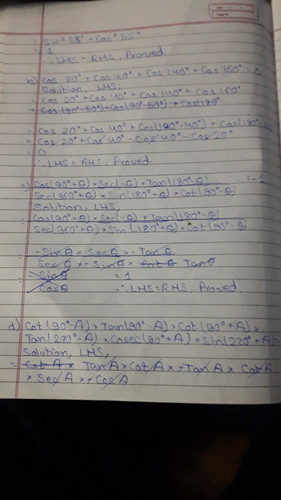 = Sin² 55° + Cos² 55°
= 1
∴ LHS = RHS, Proved.
b) Cos 20° + Cos 40° + Cos 140° + Cos 160° = 0
Solution, LHS,
= Cos 20° + Cos 40° + Cos 140° + Cos 160
= Cos 20° + Cos 40° + Cos(180°-40) + Cos(180°-20
= Cos 20° + Cos 40° - Cos 40° - Cos 20°
= 0
∴ LHS = RHS, Proved.
c) Cos(90°+θ) × Sec(-θ) × Tan(180°-θ) = -1
Sec(360°+θ) × Sin(180°+θ) × Cot(90°-θ)
Solution, LHS,
= Cos(90°+θ) × Sec(-θ) × Tan(180°-θ)
Sec(360°+θ) × Sin(180°+θ) × Cot(90°-θ)
= -Sinθ × Secθ × -Tanθ
Secθ × -Sinθ × Tanθ
= Sinθ = 1
Cosθ ∴ LHS = RHS, Proved.
d) Cot(90°-A) × Tan(90°-A) × Cot(90°+A) ×
Tan(270°-A) × Cosec(90°+A) × Sin(270°+A) =
Solution, LHS,
= Cot A × Tan A × Cot A × -Tan A × Cot A
× Sec A × -Cos A